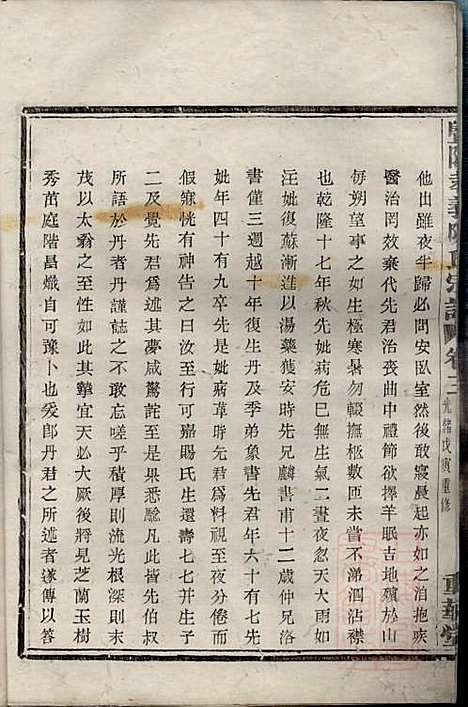 暨陽孝義陳氏宗譜 卷三 光緒戊寅重修 重華堂
他出雖夜半歸必問安臥室然後敢寢晨起亦如之洎抱疾
醫治罔效棄代先君治喪曲中禮節欲擇羊眠吉地殯於山
每朔望事之如生極寒暑勿輟撫柩數匝未嘗不涕泗沾襟
也乾隆十七年秋先妣病危已無生氣二晝夜忽天大雨
注妣復蘇漸進以湯藥獲安時先兄麟書甫十二歲仲兄洛
書僅三週越十年復生丹及季弟象書先君年六十有七先
妣年四十有九卒先是妣病革時先君為料視至夜分倦而
假寐恍有神告之曰汝至行可嘉賜氏生還壽七七并生子
二及覺先君為述其夢咸驚詫至是果悉驗凡此皆先伯叔
所語於丹者丹謹誌之不敢忘嗟乎積厚則流光根深則末
茂以太翁之至性如此其摯宜天必大厥後將見芝蘭玉樹
秀茁庭階昌熾自可豫卜也爰郎丹君之所述者遂傳以答